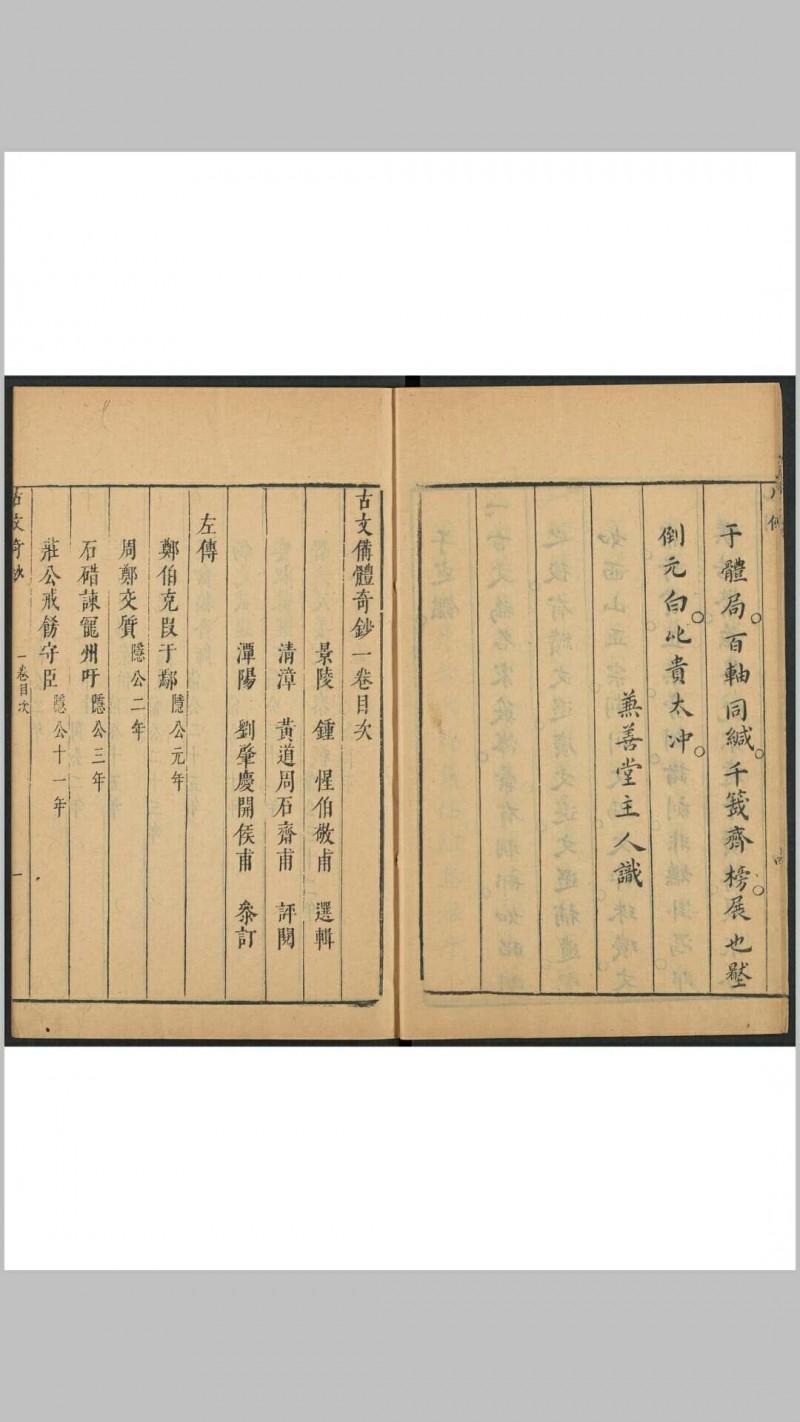 于體局百軸同緘千籤齊榜展也壓
倒元白此貴太冲
兼善堂主人識
古文備體奇鈔一卷目次
景陵 鍾惺伯敬甫 選輯
清漳 黃道周石齋甫 評閱
潭陽 劉肇慶開侯甫 參訂
左傳
鄭伯克段于鄢 隱公元年
周鄭交質 隱公二年
石碏諫寵州吁 隱公三年
莊公戒飭守臣 隱公十一年
古文奇鈔 一卷目次 一